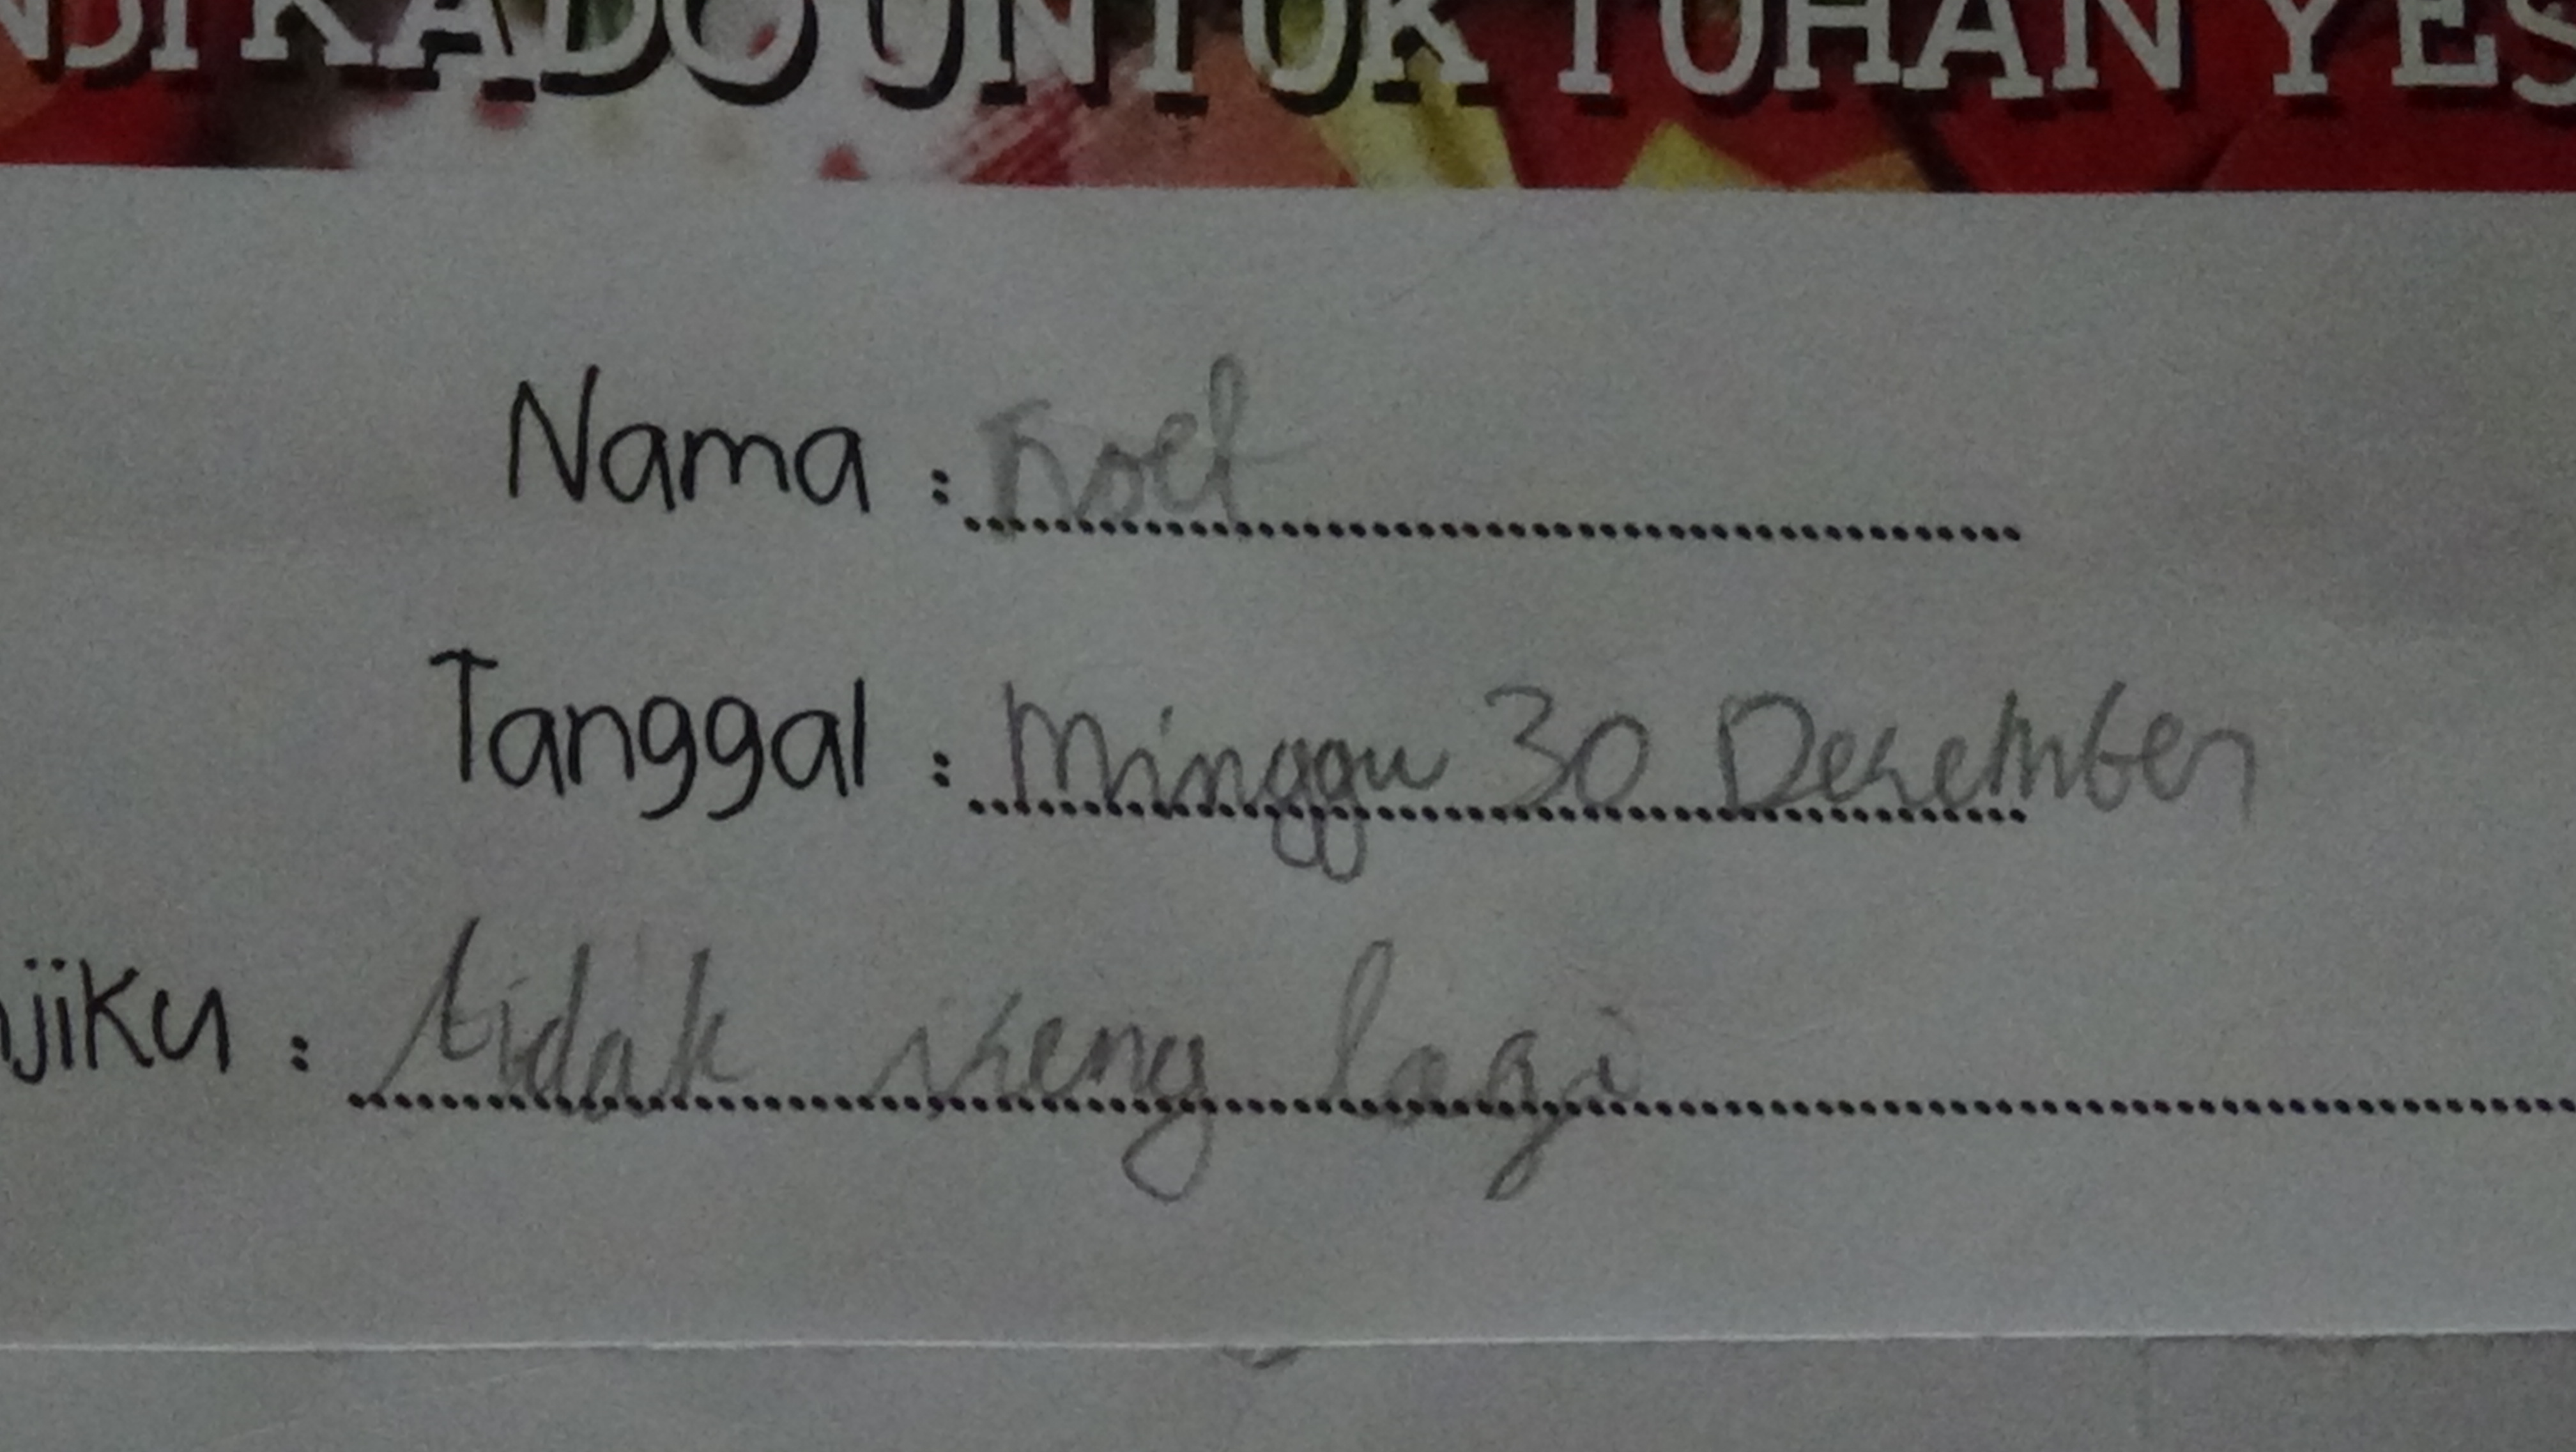 NJI KADO UNTUK TUHAN YES
Nama : noel
Tanggal : Minggu 30 Desember
njiku : tidak iseng lagi